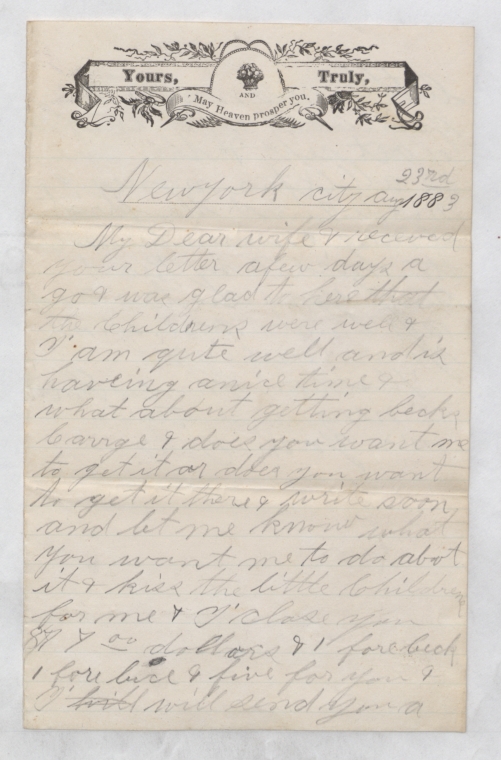 Yours, Truly,
AND
May Heaven prosper you.
New york city aug 23rd 1883
My Dear wife & receved
your letter afew days a
go & was glad to here that
the Childrens were well &
I am qute well and is
haveing anice time &
what about getting becks
Carrge & does you want me
to get it or does you want
to get it there & write soon
and let me know what
you want me to do about
it & kiss the little Children
for me & I close you
$7 7 00 dollars & 1 fore beck
1 fore bice & five for you &
I will send you a